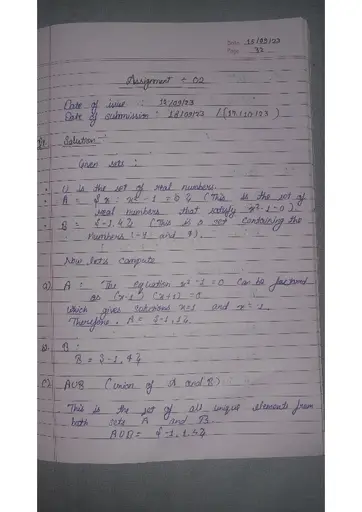 Date 15/09/23
Page 32
Assignment - 02
Date of issue : 15/09/23
Date of submission : 18/09/23 / (19/10/23)
Q1 Solution
Given sets :
U is the set of real numbers.
A = { x : x² - 1 = 0 } (This is the set of
real numbers that satisfy x² - 1 = 0)
B = {-1, 4} (This is a set containing the
numbers -1 and 4).
Now let's compute
a) A : The equation x² - 1 = 0 can be factored
as (x-1) (x+1) = 0
which gives solutions x=1 and x=-1.
Therefore, A = {-1, 1}
B :
B = {-1, 4}
(c) AUB (union of A and B) :
This is the set of all unique elements from
both sets A and B.
AUB = {-1, 1, 4}